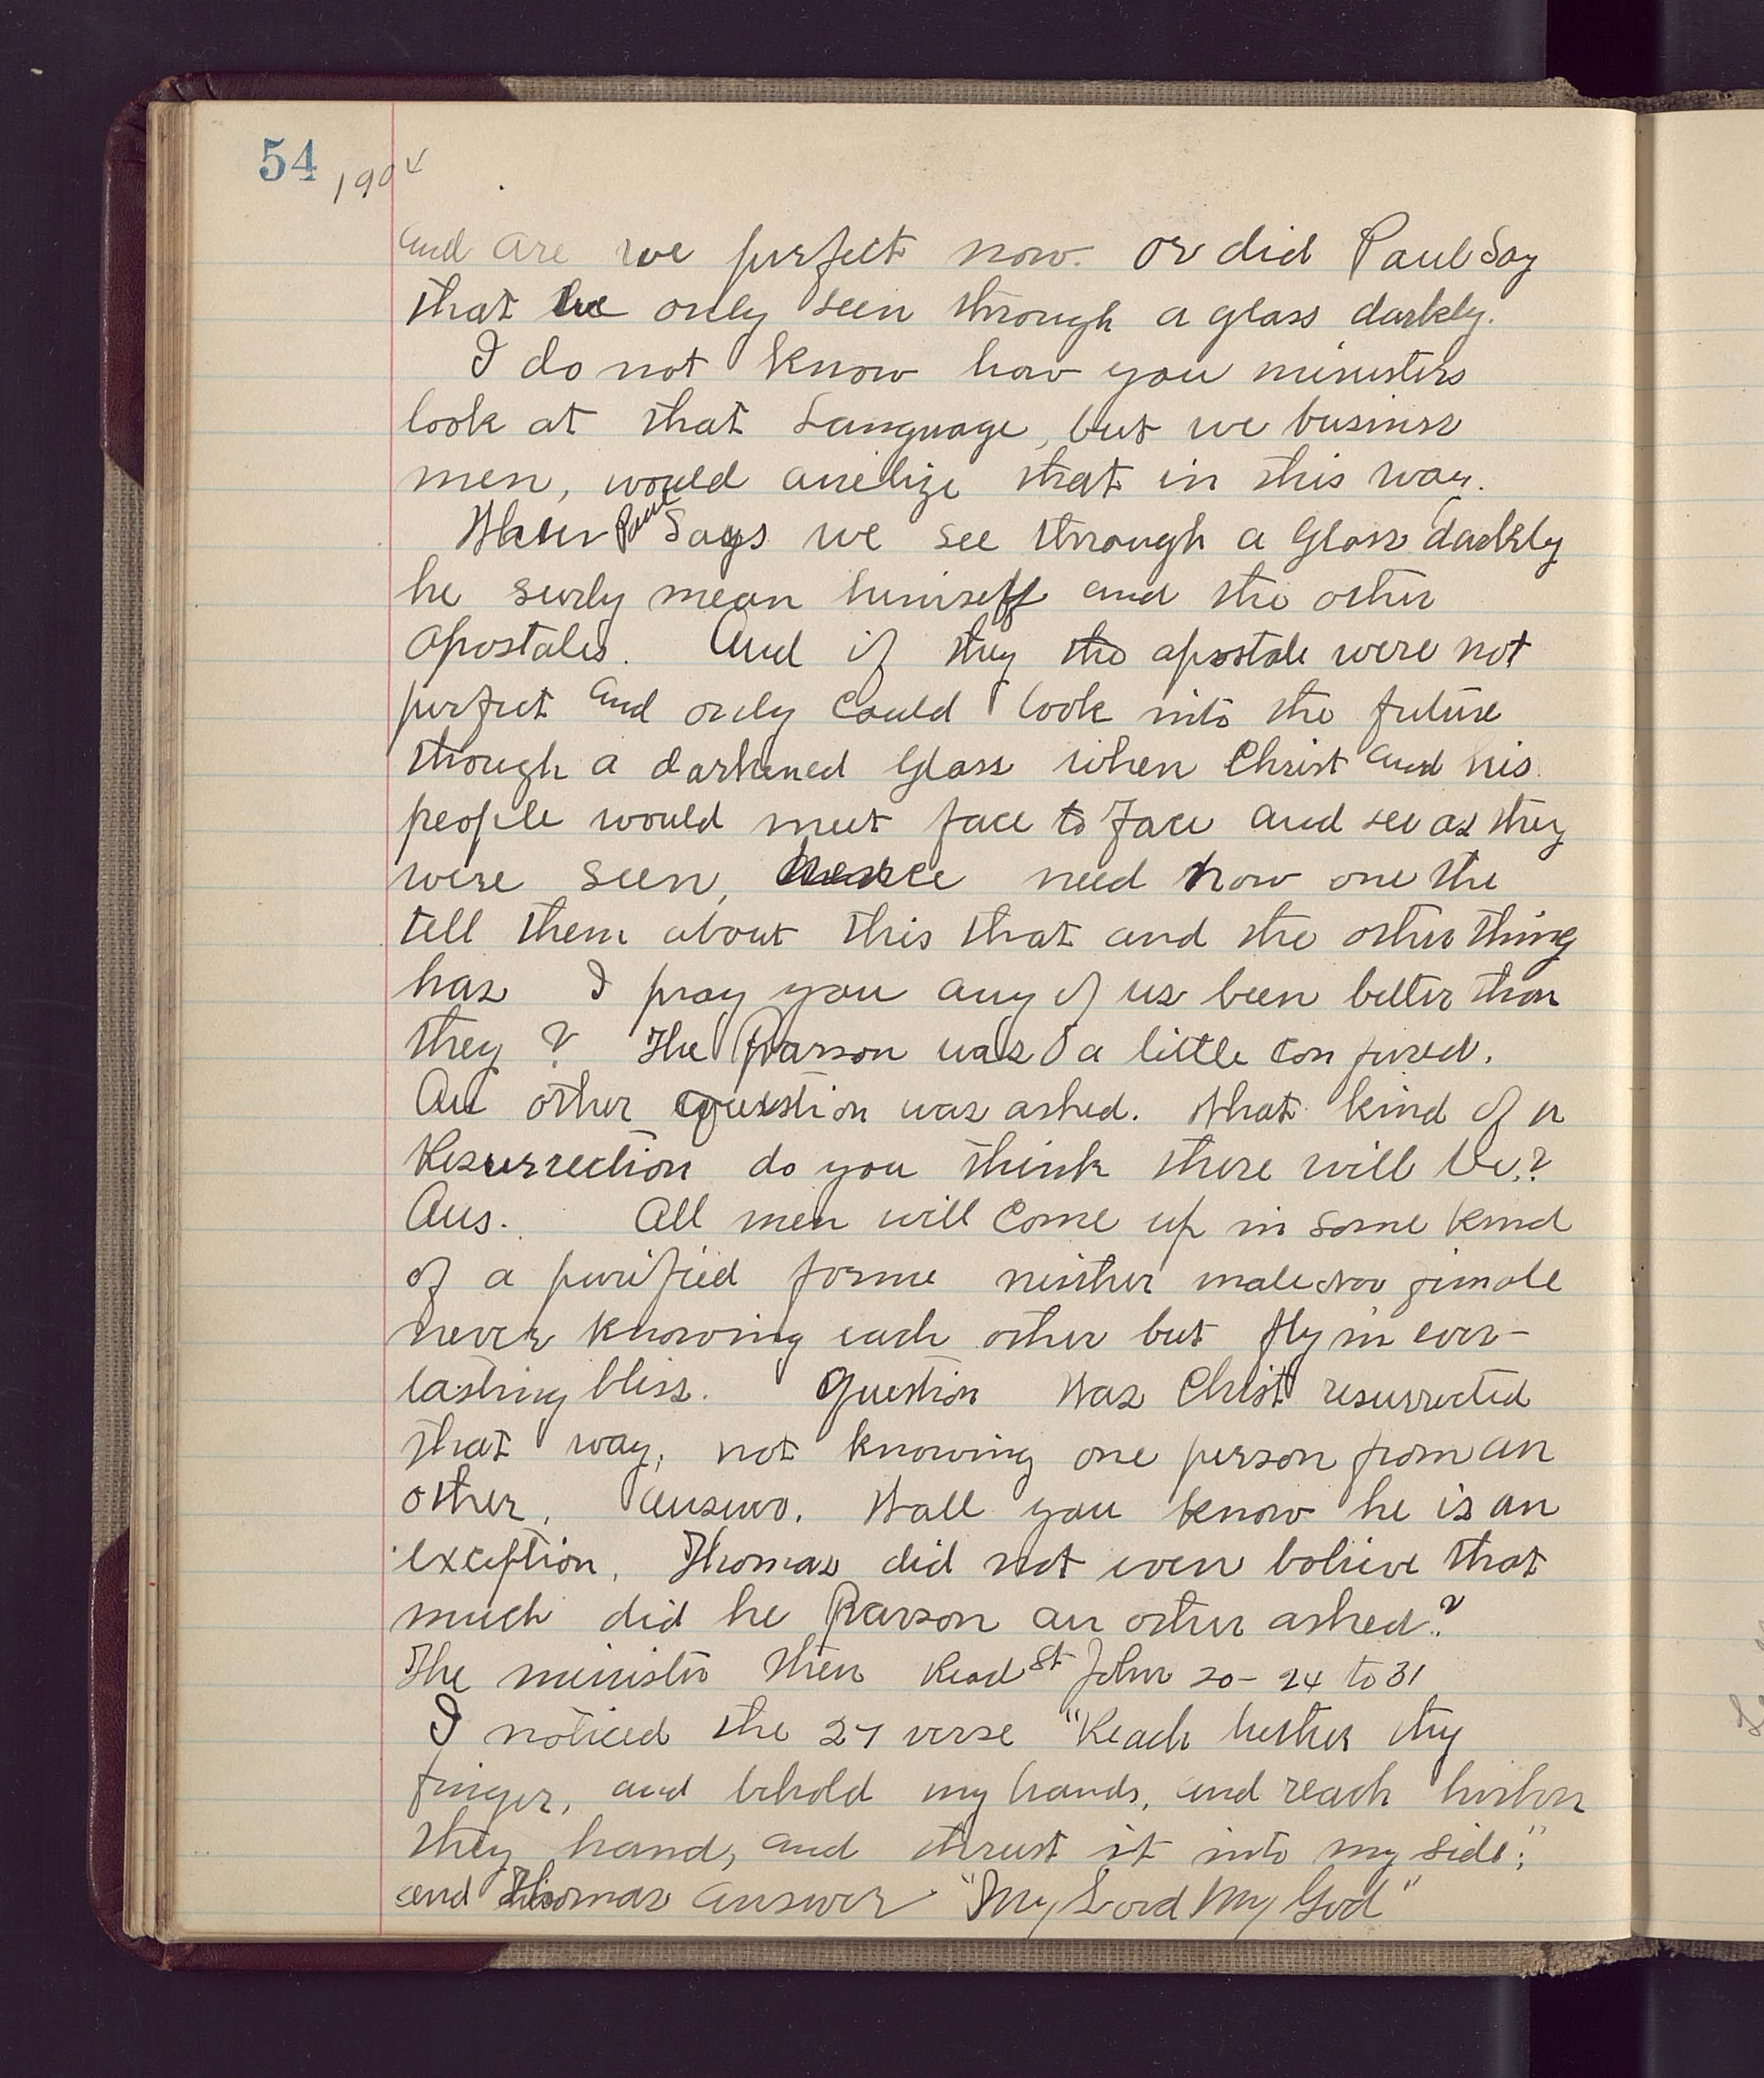 54 1904
and are we perfect now. or did Paul Say
that he only seen through a glass darkly.
I do not know how you ministers
look at that Language, but we business
men, would anelize that in this way.
When Paul Says we see through a Glass darkly
he surly mean himself and the other
apostales. And if they the apostale were not
perfect and only could look into the future
though a darkened Glass when Christ and his
people would meet face to face and see as they
were seen, need now one the
tell them about this that and the other thing
has I pray you any of us been better than
they? The Parson was a little confused.
An other question was asked. What kind of a
Resurrection do you think there will be?
Ans. All men will come up in some kind
of a purified forme neither male nor female
never knowing each other but fly in ever-
lasting bliss. Question Was Christ resurrected
that way, not knowing one person from an
other, answer. Wall you know he is an
exception, Thomas did not even belive that
much did he Parson an other asked?
The minister then Read St John 20-24 to 31
I noticed the 27 verse "Reach hither thy
finger, and behold my hands, and reach hither
they hand, and thrust it into my side;"
and Thomas answer "My Lord My God"